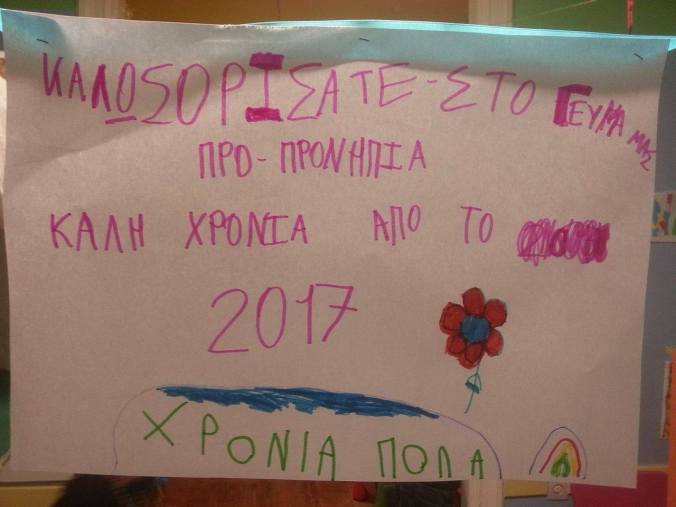 ΚΑΛΟΣΟΡΙΣΑΤΕ-ΣΤΟ ΓΕΥΜΑ ΜΑΣ
ΠΡΟ-ΠΡΟΝΗΠΙΑ
ΚΑΛΗ ΧΡΟΝΙΑ ΑΠΟ ΤΟ
2017
ΧΡΟΝΙΑ ΠΟΛΑ